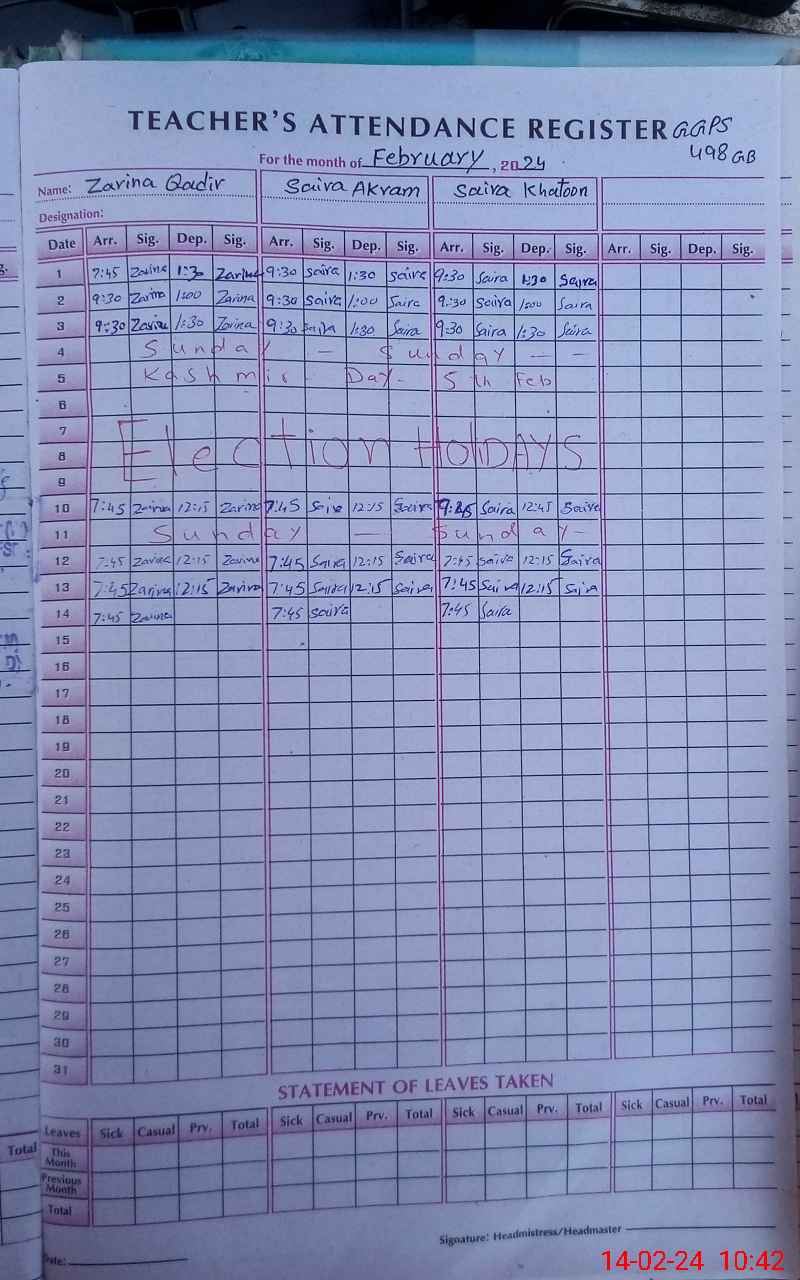 TEACHER'S ATTENDANCE REGISTER GGPS
498 GB
For the month of February, 2024
Name: Zarina Qadir Saira Akram Saira Khatoon
Designation:
Date Arr. Sig. Dep. Sig. Arr. Sig. Dep. Sig. Arr. Sig. Dep. Sig. Arr. Sig. Dep. Sig.
1 7:45 Zarina 1:30 Zarina 9:30 Saira 1:30 Saira 9:30 Saira 1:30 Saira
2 9:30 Zarina 1:00 Zarina 9:30 Saira 1:00 Saira 9:30 Saira 1:00 Saira
3 9:30 Zarina 1:30 Zarina 9:30 Saira 1:30 Saira 9:30 Saira 1:30 Saira
4 Sunday — Sunday — —
5 Kashmir Day - 5th Feb
6
7
Election HoliDAYS
8
9
10 7:45 Zarina 12:15 Zarina 7:45 Saira 12:15 Saira 7:45 Saira 12:45 Saira
11 Sunday — Sunday -
12 7:45 Zarina 12:15 Zarina 7:45 Saira 12:15 Saira 7:45 Saira 12:15 Saira
13 7:45 Zarina 12:15 Zarina 7:45 Saira 12:15 Saira 7:45 Saira 12:15 Saira
14 7:45 Zarina 7:45 Saira 7:45 Saira
15
16
17
18
19
20
21
22
23
24
25
26
27
28
29
30
31
STATEMENT OF LEAVES TAKEN
Leaves Sick Casual Prv. Total Sick Casual Prv. Total Sick Casual Prv. Total Sick Casual Prv. Total
This Month
Previous Month
Total
Total
Signature: Headmistress/Headmaster
Date:
14-02-24 10:42